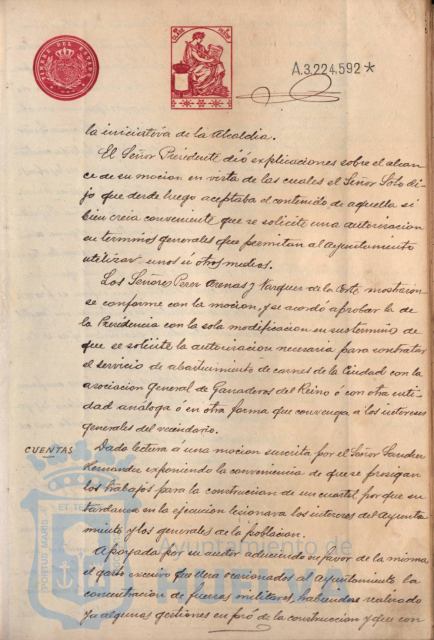 TIMBRE DEL ESTADO
A.3.224,592*
la iniciativa de la Alcaldia.
El Señor Presidente dió explicaciones sobre el alcan
ce de su mocion en vista de las cuales el Señor Soto di-
jo que desde luego aceptaba el contenido de aquella si
bien creia conveniente que se solicite una autorizacion
en terminos generales que permitan al Ayuntamiento
utilizar unos ú otros medios.
Los Señores Perez Arenas y Vazquez de la Corte mostraron
se conforme con la mocion, y se acordó aprobar la de
la Presidencia con la sola modificacion en sus terminos de
que se solicite la autorizacion necesaria para contratar
el servicio de abastecimiento de carnes de la Ciudad con la
asociacion General de Ganaderos del Reino ó con otra enti-
dad análoga ó en otra forma que convenga á los intereses
generales del vecindario.
CUENTAS
Dada lectura á una mocion suscrita por el Señor Sanchez
Hernandez exponiendo la conveniencia de que se prosigan
los trabajos para la construccion de un cuartel porque su
tardanza en la ejecucion lesionara los intereses del Ayunta
miento y los generales de la poblacion.
Apoyada por su autor aduciendo en favor de la misma
el gasto excesivo que lleva ocasionados al Ayuntamiento la
concentracion de fuerzas militares, habiendose realizado
ya algunas gestiones en pró de la construccion y que con
PORTUS MARIS ET TERRAE
Ayuntamiento de
HUELVA